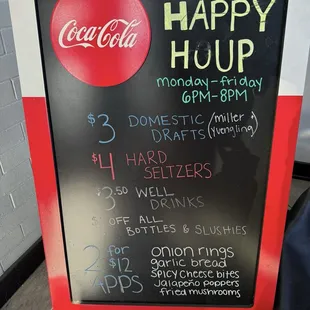 Coca-Cola
HAPPY
HOUP
monday-friday
6PM-8PM
$3 DOMESTIC DRAFTS (miller / yuengling)
$4 HARD SELTZERS
$3.50 WELL DRINKS
OFF ALL BOTTLES & SLUSHIES
2 for $12 APPS
onion rings
garlic bread
spicy cheese bites
Jalapeño poppers
fried mushrooms